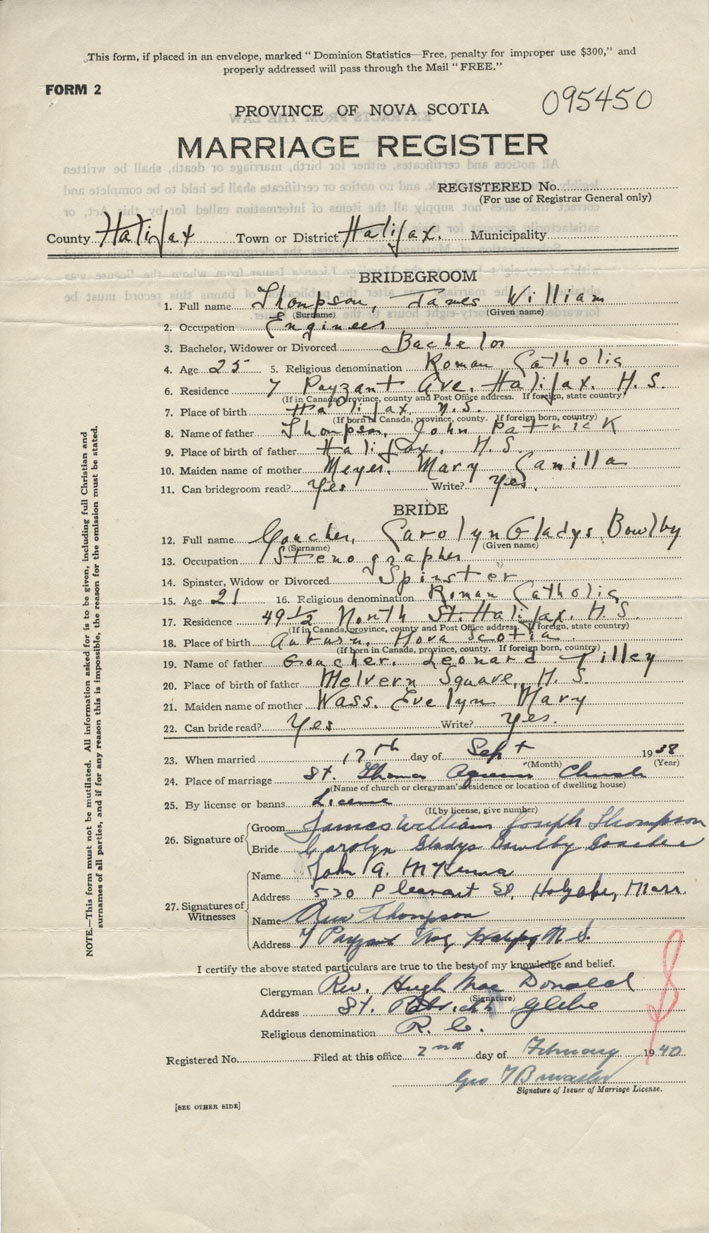 This form, if placed in an envelope, marked "Dominion Statistics—Free, penalty for improper use $300," and
properly addressed will pass through the Mail "FREE."
FORM 2
095450
PROVINCE OF NOVA SCOTIA
MARRIAGE REGISTER
REGISTERED No.
(For use of Registrar General only)
County Halifax Town or District Halifax. Municipality
BRIDEGROOM
1. Full name Thompson, James William
(Surname) (Given name)
2. Occupation Engineer
3. Bachelor, Widower or Divorced Bachelor
4. Age 25 5. Religious denomination Roman Catholic
6. Residence 7 Payzant Ave. Halifax. N.S.
(If in Canada, province, county and Post Office address. If foreign, state country)
7. Place of birth Halifax N.S.
(If born in Canada, province, county. If foreign born, country)
8. Name of father Thompson, John Patrick
9. Place of birth of father Halifax. N.S.
10. Maiden name of mother Meyer. Mary Camilla
11. Can bridegroom read? Yes Write? Yes.
BRIDE
12. Full name Goucher, Carolyn Gladys Bowlby
(Surname) (Given name)
13. Occupation Stenographer
14. Spinster, Widow or Divorced Spinster
15. Age 21 16. Religious denomination Roman Catholic
17. Residence 49½ North St. Halifax. N.S.
(If in Canada, province, county and Post Office address. If foreign, state country)
18. Place of birth Auburn, Nova Scotia
(If born in Canada, province, county. If foreign born, country)
19. Name of father Goucher. Leonard Tilley
20. Place of birth of father Melvern Square, N.S.
21. Maiden name of mother Wass. Evelyn Mary
22. Can bride read? Yes Write? Yes.
23. When married 17th day of Sept 1938
(Month) (Year)
24. Place of marriage St. Thomas Church
(Name of church or clergyman's residence or location of dwelling house)
25. By license or banns License
(If by license, give number)
26. Signature of Groom James William Joseph Thompson
Bride Carolyn Gladys Bowlby Goucher
27. Signatures of Witnesses Name John A. McKenna
Address 530 Pleasant St, Holyoke, Mass.
Name Thompson
Address 7 Payzant N.S.
I certify the above stated particulars are true to the best of my knowledge and belief.
Clergyman Rev. Hugh MacDonald
(Signature)
Address St. Patrick's Glebe
Religious denomination R.C.
Registered No. Filed at this office 2nd day of February 1940
Geo
Signature of Issuer of Marriage License.
[SEE OTHER SIDE]
NOTE.—This form must not be mutilated. All information asked for is to be given, including full Christian and
surnames of all parties, and if for any reason this is impossible, the reason for the omission must be stated.